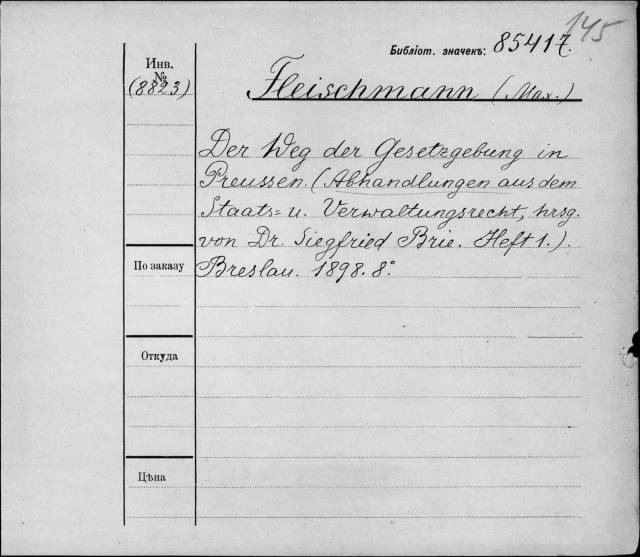 145
Библіот. значекъ: 85417.
Инв.
№
(8823)
Fleischmann (Max.)
Der Weg der Gesetzgebung in
Preussen. (Abhandlungen aus dem
Staats= u. Verwaltungsrecht, hrsg.
von Dr. Siegfried Brie. Heft 1.).
Breslau. 1898. 8°.
По заказу
Откуда
Цѣна